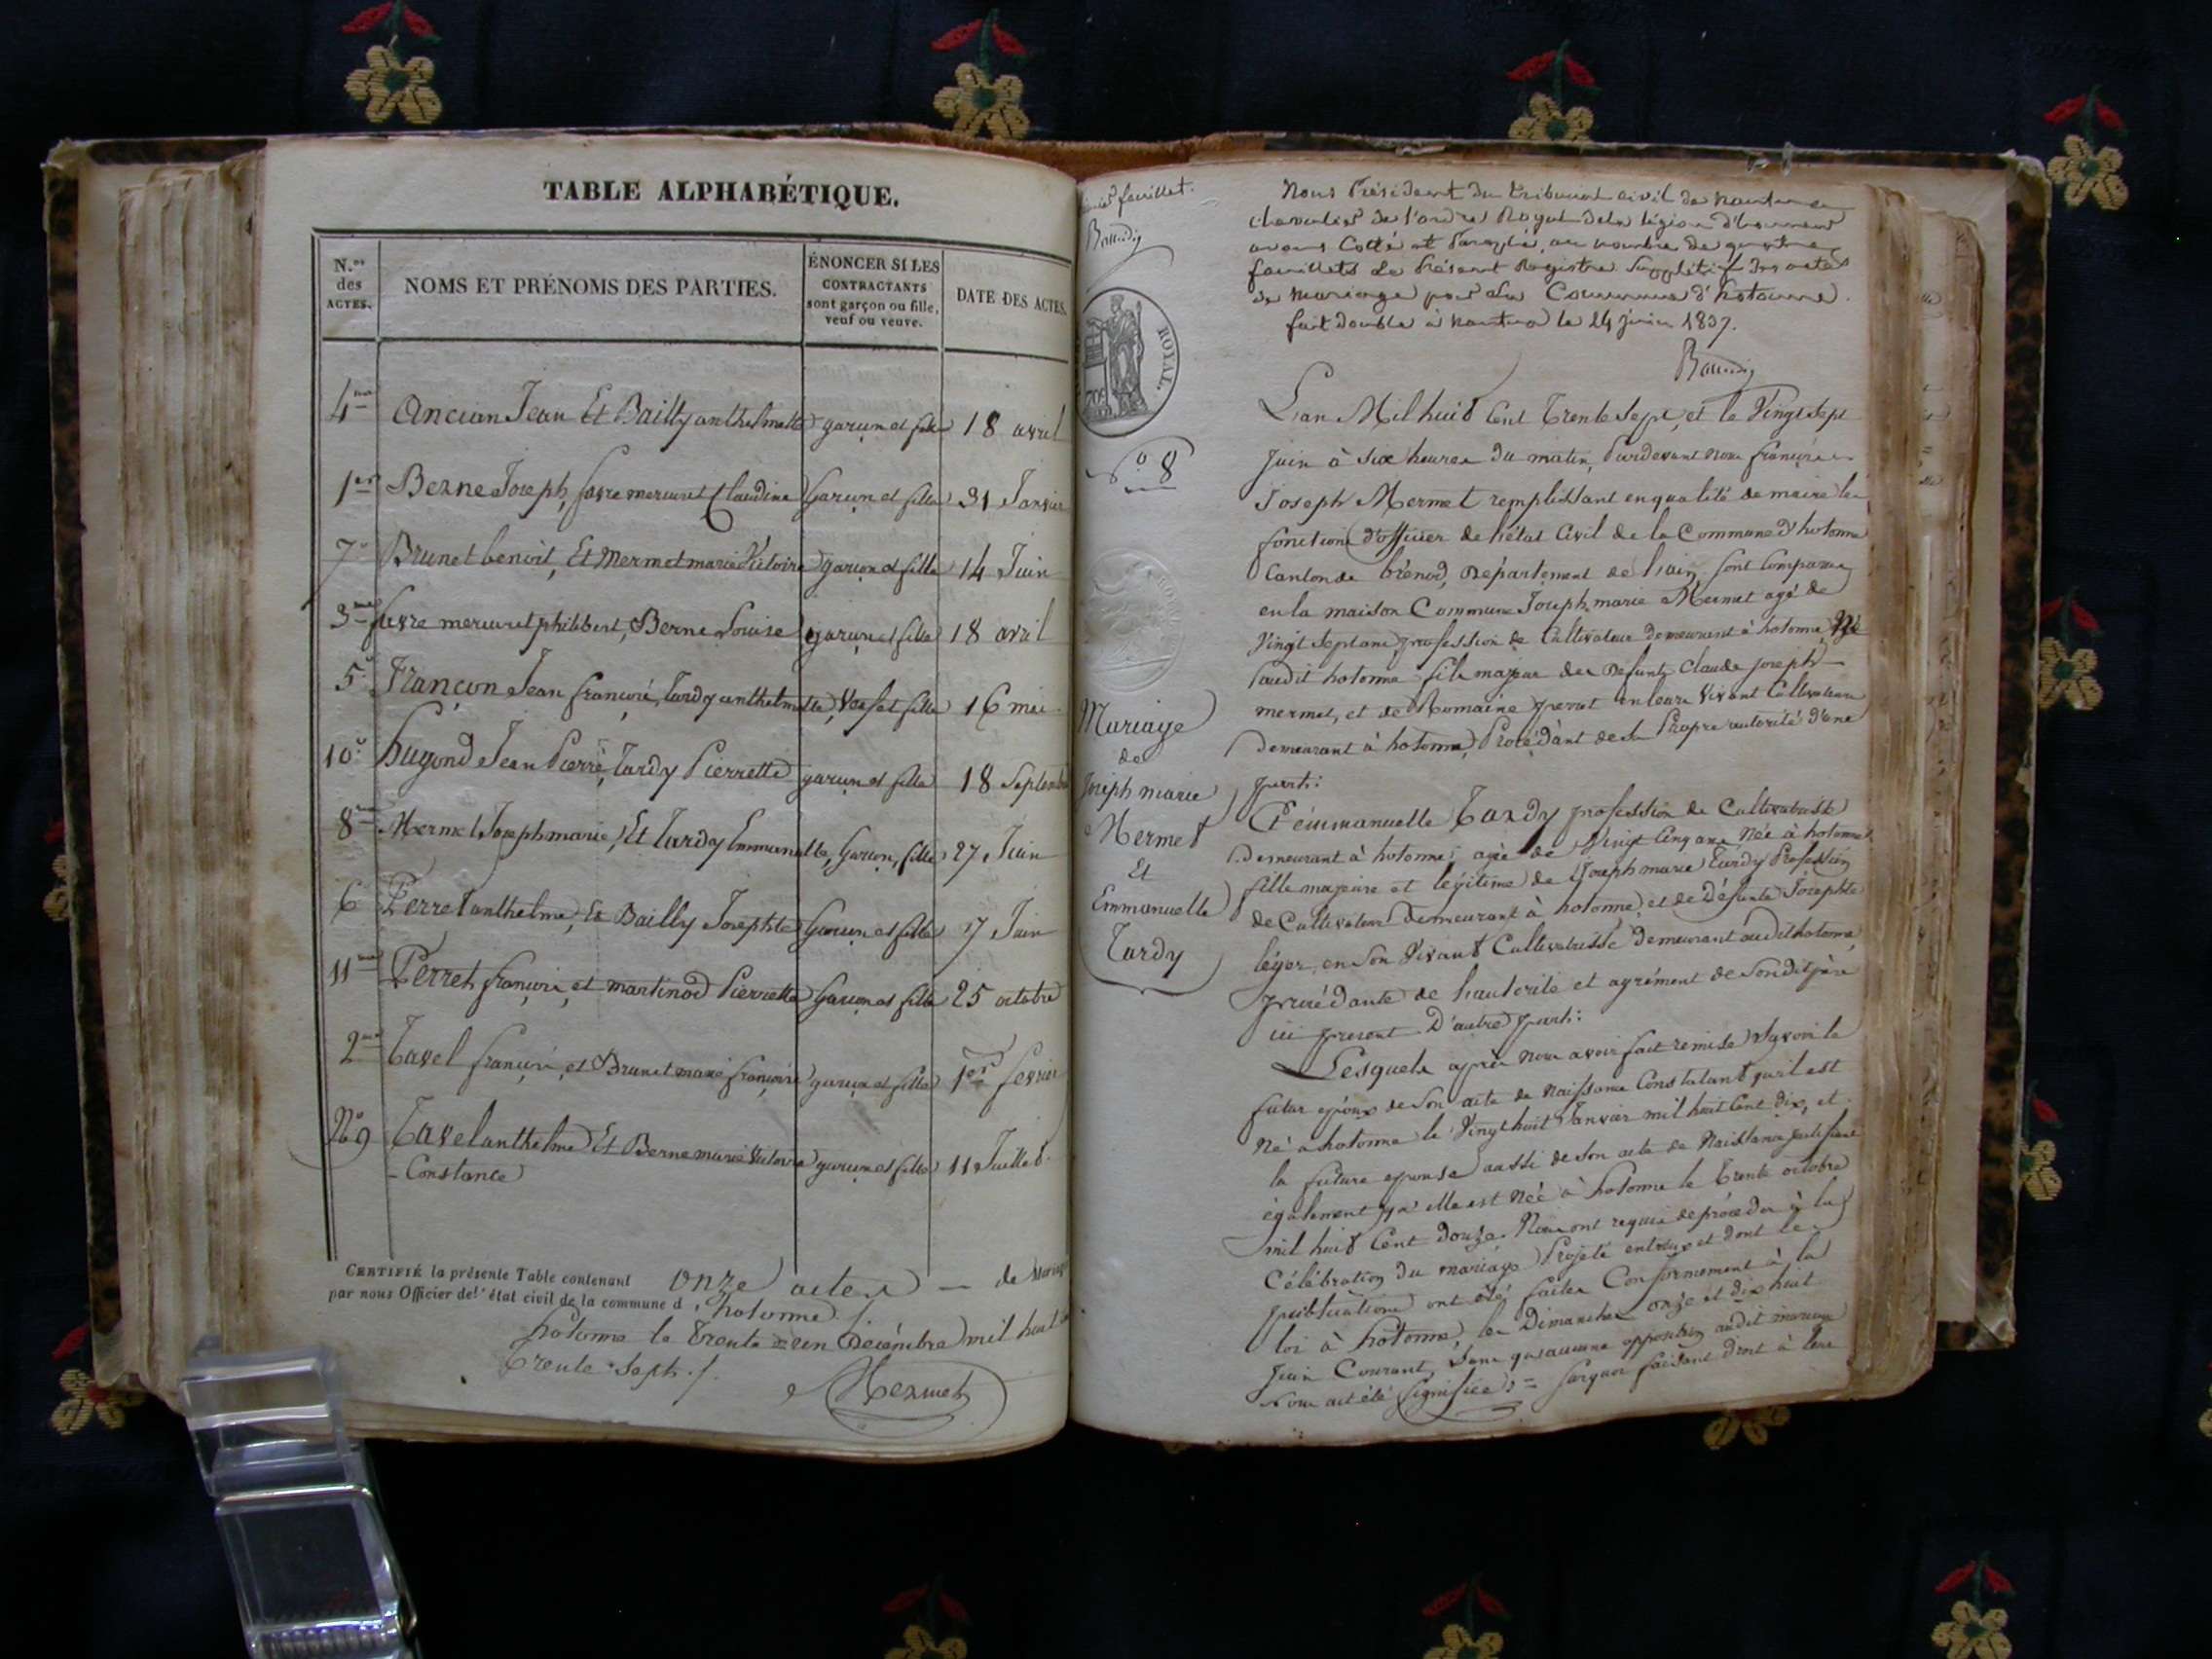 TABLE ALPHABÉTIQUE.
N.os des ACTES.
NOMS ET PRÉNOMS DES PARTIES.
ÉNONCER SI LES CONTRACTANTS sont garçon ou fille, veuf ou veuve.
DATE DES ACTES.
4me Ancian Jean Et Bailly anthelmette garçon et fille 18 avril
1er Berne Joseph, favre mercuret Claudine Garçon et fille 31 Janvier
7e Brunet benoit, Et Mermet marie Victoire garçon et fille 14 Juin
3me favre mercuret philibert, Berne Louise garçon et fille 18 avril
5e Françon Jean françois, Tardy anthelmette, Veuf et fille 16 mai
10e hugond Jean Pierre, Tardy Pierrette garçon et fille 18 Septembre
8me Mermet Joseph marie, Et Tardy Emmanuelle, Garçon, fille 27 Juin
6 Perret anthelme, Et Bailly Josephte Garçon et fille 7 Juin
11me Perret françois, et martinod Pierrette Garçon et fille 25 octobre
2me Tavel françois, et Brunet marie françoise garçon et fille 1er fevrier
No 9 Tavel anthelme Et Berne marie Victoire garçon et fille 11 Juillet
- Constance
CERTIFIÉ la présente Table contenant onze actes — de Mariage
par nous Officier de l'état civil de la commune d'hotonne ./.
hotonne le trente un Décembre mil huit
trente-sept ./.
Mermet
feuillet.
Nous Président du tribunal civil de Nantua
chevalier de l'ordre Royal de la légion d'honneur
avons Cotté et Paraphé, au nombre de quatre
feuillets le Présent Registre Supplétif des actes
de Mariage pour la Commune d'hotonne.
fait double à Nantua le 24 juin 1837.
ROYAL.
No 8
Mariage
de
Joseph marie
Mermet
Et
Emmanuelle
Tardy
L'an Mil huit Cent trente Sept, et le Vingt Sept
Juin à Six heures du matin, Pardevant Nous françois
Joseph Mermet remplissant en qualité de maire les
fonctions d'officier de l'état Civil de la Commune d'hotonne
Canton de brénod, Département de l'ain, sont Comparus
en la maison Commune Joseph marie Mermet agé de
Vingt Sept ans, profession de Cultivateur demeurant à hotonne, Né
audit hotonne fils majeur des Defunts Claude joseph
mermet, et de Romaine perret en leurs Vivant Cultivateurs
Demeurant à hotonne, Procédant de sa Propre autorité d'une
part:
Et émmanuelle Tardy profession de Cultivatrice
Demeurant à hotonne, agée de Vingt Cinq ans, Née à hotonne
fille majeure et légitime de Joseph marie Tardy Profession
de Cultivateur Demeurant à hotonne, et de Défunte Josephte
léger, en Son Vivant Cultivatrice Demeurant audit hotonne,
procédante de l'autorité et agrément de Son dit père
ici present D'autre part:
Lesquels après Nous avoir fait remise Savoir le
futur epoux de Son acte de Naissance Constatant qu'il est
Né à hotonne le Vingt huit Janvier mil huit Cent dix, et
la future epouse aussi de Son acte de Naissance justifiant
également qu'elle est Née à hotonne le trente octobre
mil huit Cent douze. Nous ont requis de procéder à la
Célébration du mariage Projeté entr'eux et dont les
publications ont été faites Conformement à la
loi à hotonne, les Dimanches onze et dix huit
Juin Courant, Sans qu'aucune opposition audit mariage
Nous ait été Signifiée:= faisant droit à leur